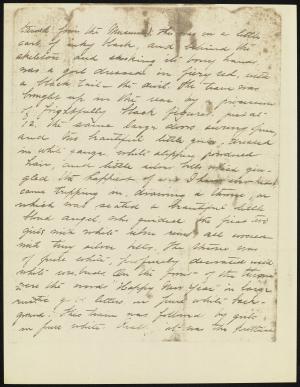 from the Museum this was on a little
cart of inky black, and behind the
skeleton and shaking its bony hand
was a girl dressed in fiery red, with
a black tail - the devil. The train was
brought up in the rear by a procession
of frightfully black figures. Just at
12, the same large doors swung open,
and two beautiful little girls, dressed
in white gauze, white slippers powdered
hair, and little silver bells which jin-
gled the happiness of
came tripping in, drawing a throne, on
which was seated a beautiful little
blond angel, who guided the first two
girls with white reins wound
with tiny silver bells, the throne was
of pure white, profusely decorated with
white On the front of the throne
were the words "Happy New Year" in large
gold letters on pure white back-
ground. This train was followed by girls
in pure white it was the prettiest